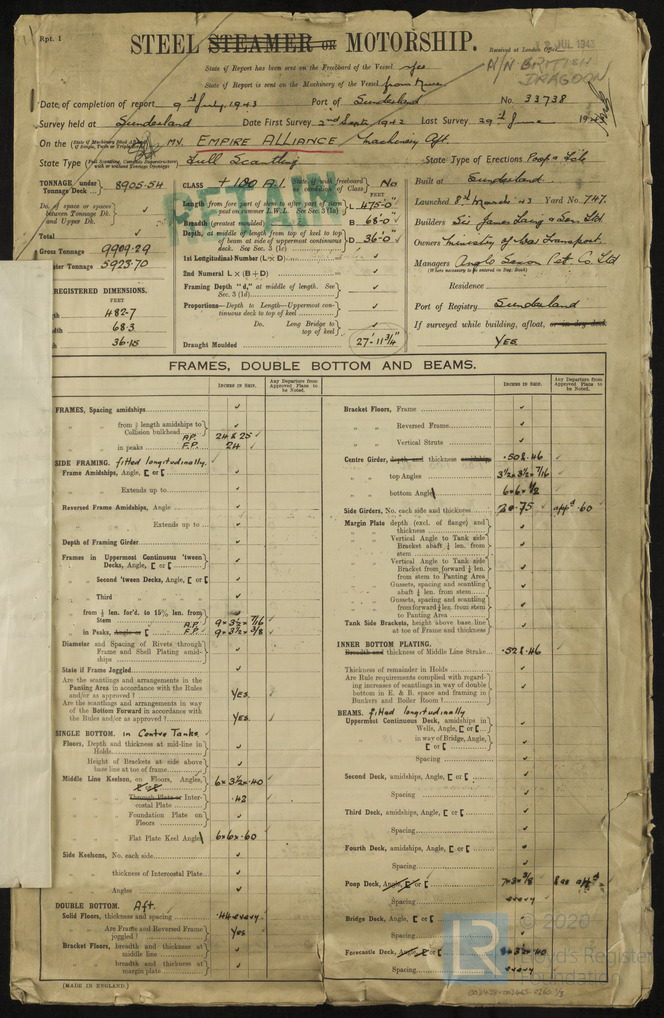 Rpt. 1
STEEL STEAMER OR MOTORSHIP.
Received at London Office
12 JUL 1943
State if Report has been sent on the Freeboard of the Vessel Yes
State if Report is sent on the Machinery of the Vessel from
N/N BRITISH DRAGOON
Date of completion of report 9th July, 1943 Port of Sunderland No. 33738
Survey held at Sunderland Date First Survey 2nd Sept, 1942 Last Survey 29th June 19
On the MV. EMPIRE ALLIANCE Machinery Aft.
State Type Full Scantling State Type of Erections Poop & Fcle
TONNAGE, under Tonnage Deck ... 8905.54
Do. of space or spaces between Tonnage Dk. and Upper Dk.
Total
Gross Tonnage 9909.29
ster Tonnage 5923.70
REGISTERED DIMENSIONS.
FEET
482.7
68.3
36.15
CLASS + 100 A.1. No
RETAIN
FEET
L 475'-0"
B 68'-0"
D 36'-0"
1st Longitudinal Number (L×D)
2nd Numeral L×(B+D)
Framing Depth "d," at middle of length. See Sec. 3 (1d)
Proportions—Depth to Length—Uppermost continuous deck to top of keel
Do. Long Bridge to top of keel
Draught Moulded 27'-11 3/4"
Built at Sunderland
Launched 8th March '43 Yard No. 747.
Builders Sir James Laing & Sons Ltd
Owners Ministry of War Transport.
Managers Anglo Saxon Pet. Co. Ltd
(Where necessary to be entered in Reg. Book)
Residence
Port of Registry Sunderland
If surveyed while building, afloat, or in dry dock
Yes
FRAMES, DOUBLE BOTTOM AND BEAMS.
INCHES IN SHIP.
Any Departure from Approved Plans to be Noted.
INCHES IN SHIP.
Any Departure from Approved Plans to be Noted.
FRAMES, Spacing amidships
from 1/5 length amidships to Collision bulkhead A.P. 24 & 25
in peaks F.P. 24
SIDE FRAMING. fitted longitudinally.
Frame Amidships, Angle, [ or [
Extends up to
Reversed Frame Amidships, Angle
Extends up to
Depth of Framing Girder
Frames in Uppermost Continuous 'tween Decks, Angle, [ or [
Second 'tween Decks, Angle, [ or [
Third
from 1/5 len. for'd. to 15% len. from Stem A.P. 9 × 3½ × 7/16
in Peaks, Angle or [ F.P. 9 × 3½ × 3/8
Diameter and Spacing of Rivets through Frame and Shell Plating amidships
State if Frame Joggled
Are the scantlings and arrangements in the Panting Area in accordance with the Rules and/or as approved? Yes.
Are the scantlings and arrangements in way of the Bottom Forward in accordance with the Rules and/or as approved? Yes.
SINGLE BOTTOM. in Centre Tanks.
Floors, Depth and thickness at mid-line in Holds
Height of Brackets at side above base line at toe of frame
Middle Line Keelson, on Floors, Angles, 6 × 3½ × .40
Through Plate or Intercostal Plate .42
Foundation Plate on Floors
Flat Plate Keel Angle 6×6×.60
Side Keelsons, No. each side
thickness of Intercostal Plate
Angles
DOUBLE BOTTOM. Aft.
Solid Floors, thickness and spacing .44 every
Are Frame and Reversed Frame joggled? Yes
Bracket Floors, breadth and thickness at middle line
breadth and thickness at margin plate
(MADE IN ENGLAND.)
Bracket Floors, Frame
Reversed Frame
Vertical Struts
Centre Girder, depth and thickness amidships .50 & .46
top Angles 3½×3½×7/16
bottom Angle 6×6×½
Side Girders, No. each side and thickness
Margin Plate depth (excl. of flange) and thickness
Vertical Angle to Tank side Bracket abaft ¼ len. from stem
Vertical Angle to Tank side Bracket from forward ¼ len. from stem to Panting Area
Gussets, spacing and scantling abaft ¼ len. from stem
Gussets, spacing and scantling from forward ¼ len. from stem to Panting Area
Tank Side Brackets, height above base line at toe of Frame and thickness
INNER BOTTOM PLATING.
Breadth and thickness of Middle Line Strake .52 & .46
Thickness of remainder in Holds
Are Rule requirements complied with regarding increases of scantlings in way of double bottom in E. & B. space and framing in Bunkers and Boiler Room?
BEAMS. fitted longitudinally
Uppermost Continuous Deck, amidships in Wells, Angle, [ or [
in way of Bridge, Angle, [ or [
Spacing
Second Deck, amidships, Angle, [ or [
Spacing
Third Deck, amidships, Angle, [ or [
Spacing
Fourth Deck, amidships, Angle, [ or [
Spacing
Poop Deck, Angle, [ or [ 7×3×3/8
Spacing every
Bridge Deck, Angle, [ or [
Spacing
Forecastle Deck, Angle, [ or [
Spacing every
LR
© 2020
Lloyd's Register
Foundation